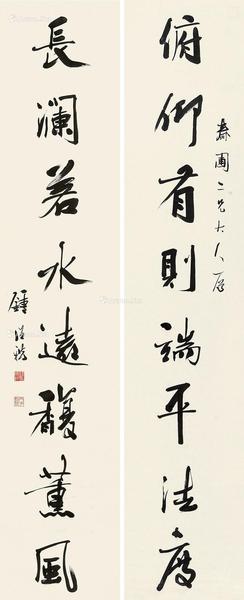 圃二兄大人屬
俯仰有則端平法度
長瀾若水遠馥薰風
鍾